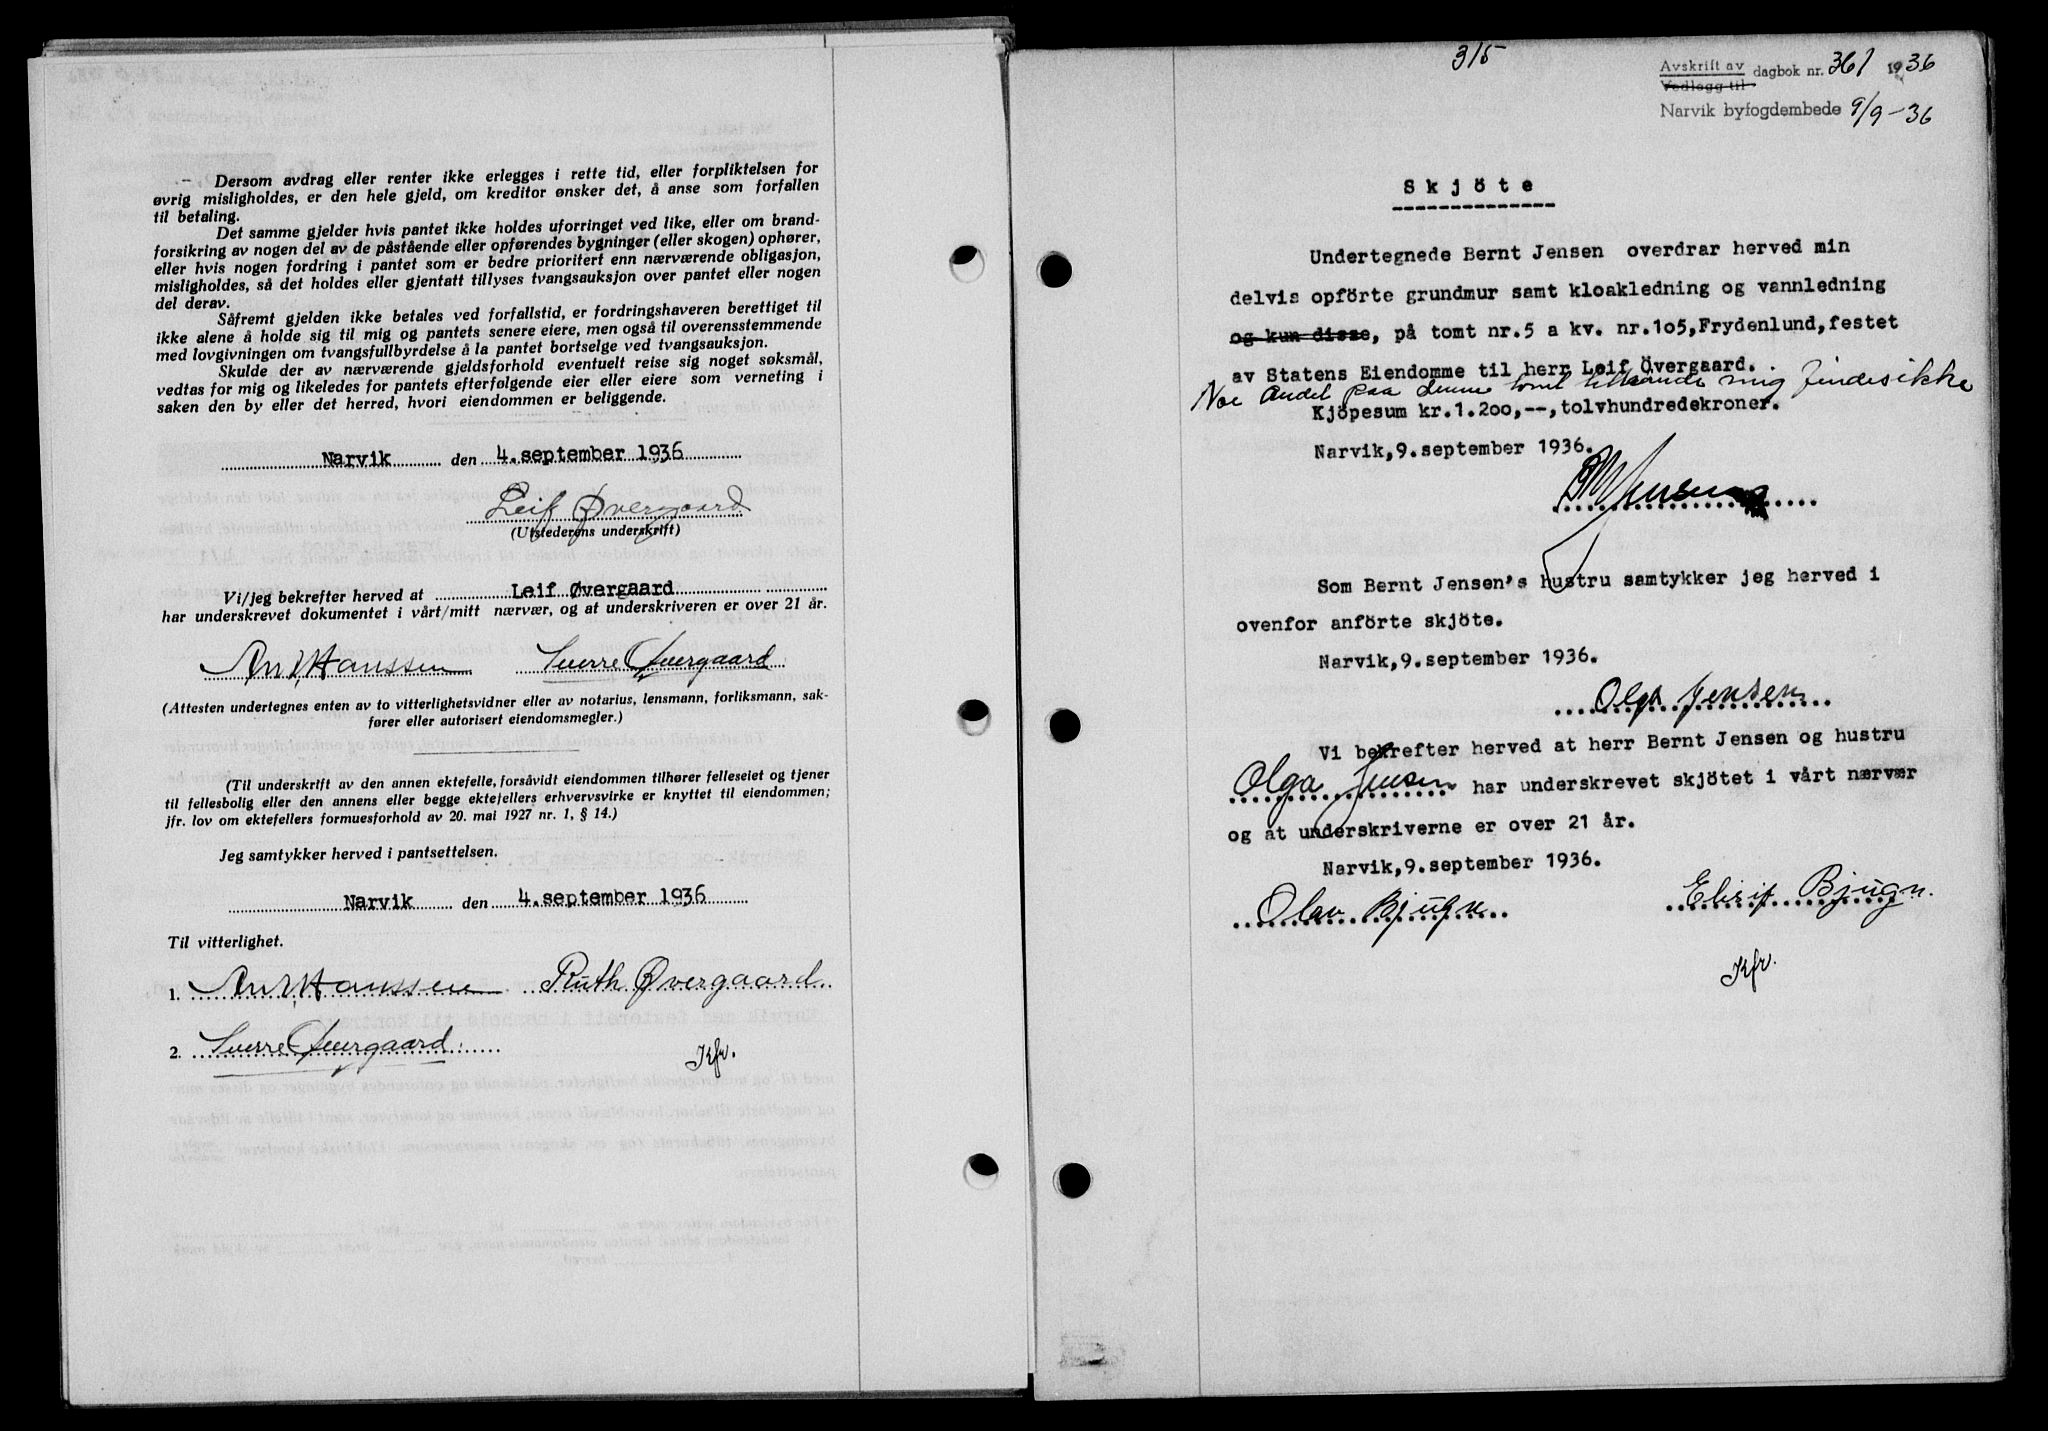 Dersom avdrag eller renter ikke erlegges i rette tid, eller forpliktelsen for
øvrig misligholdes, er den hele gjeld, om kreditor ønsker det, å anse som forfallen
til betaling.
Det samme gjelder hvis pantet ikke holdes uforringet ved like, eller om brand-
forsikring av nogen del av de påstående eller opførendes bygninger (eller skogen) ophører,
eller hvis nogen fordring i pantet som er bedre prioritert enn nærværende obligasjon,
misligholdes, så det holdes eller gjentatt tillyses tvangsauksjon over pantet eller nogen
del derav.
Såfremt gjelden ikke betales ved forfallstid, er fordringshaveren berettiget til
ikke alene å holde sig til mig og pantets senere eiere, men også til overensstemmende
med lovgivningen om tvangsfullbyrdelse å la pantet bortselge ved tvangsauksjon.
Skulde der av nærværende gjeldsforhold eventuelt reise sig noget søksmål,
vedtas for mig og likeledes for pantets efterfølgende eier eller eiere som verneting i
saken den by eller det herred, hvori eiendommen er beliggende.
Narvik den 4.september 1936
Leif Øvergaard
(Utstederens underskrift)
Vi/jeg bekrefter herved at Leif Øvergaard
har underskrevet dokumentet i vårt/mitt nærvær, og at underskriveren er over 21 år.
Hanssen Sverre Øvergaard
(Attesten undertegnes enten av to vitterlighetsvidner eller av notarius, lensmann, forliksmann, sak-
fører eller autorisert eiendomsmegler.)
(Til underskrift av den annen ektefelle, forsåvidt eiendommen tilhører felleseiet og tjener
til fellesbolig eller den annens eller begge ektefellers erhvervsvirke er knyttet til eiendommen;
jfr. lov om ektefellers formuesforhold av 20. mai 1927 nr. 1, § 14.)
Jeg samtykker herved i pantsettelsen.
Narvik den 4.september 1936
Til vitterlighet.
1. Hanssen Ruth Øvergaard
2. Sverre Øvergaard
Kfr.
315
Avskrift av
Vedlegg til
dagbok nr. 361 1936
Narvik byfogdembede 9/9-36
Skjöte
Undertegnede Bernt Jensen overdrar herved min
delvis opförte grundmur samt kloakledning og vannledning
og kun disse, på tomt nr.5 a kv. nr.105,Frydenlund,festet
av Statens Eiendomme til herr Leif Övergaard.
Noe Andet paa denne tomt tilhørende mig findes ikke
Kjöpesum kr.1.200,--,tolvhundredekroner.
Narvik,9.september 1936.
Jensen
Som Bernt Jensen's hustru samtykker jeg herved i
ovenfor anförte skjöte.
Narvik,9.september 1936.
Olga Jensen
Vi bekrefter herved at herr Bernt Jensen og hustru
Olga Jensen har underskrevet skjötet i vårt nærvær
og at underskriverne er over 21 år.
Narvik,9.september 1936.
Olav Bjugn Bjugn.
Kfr.